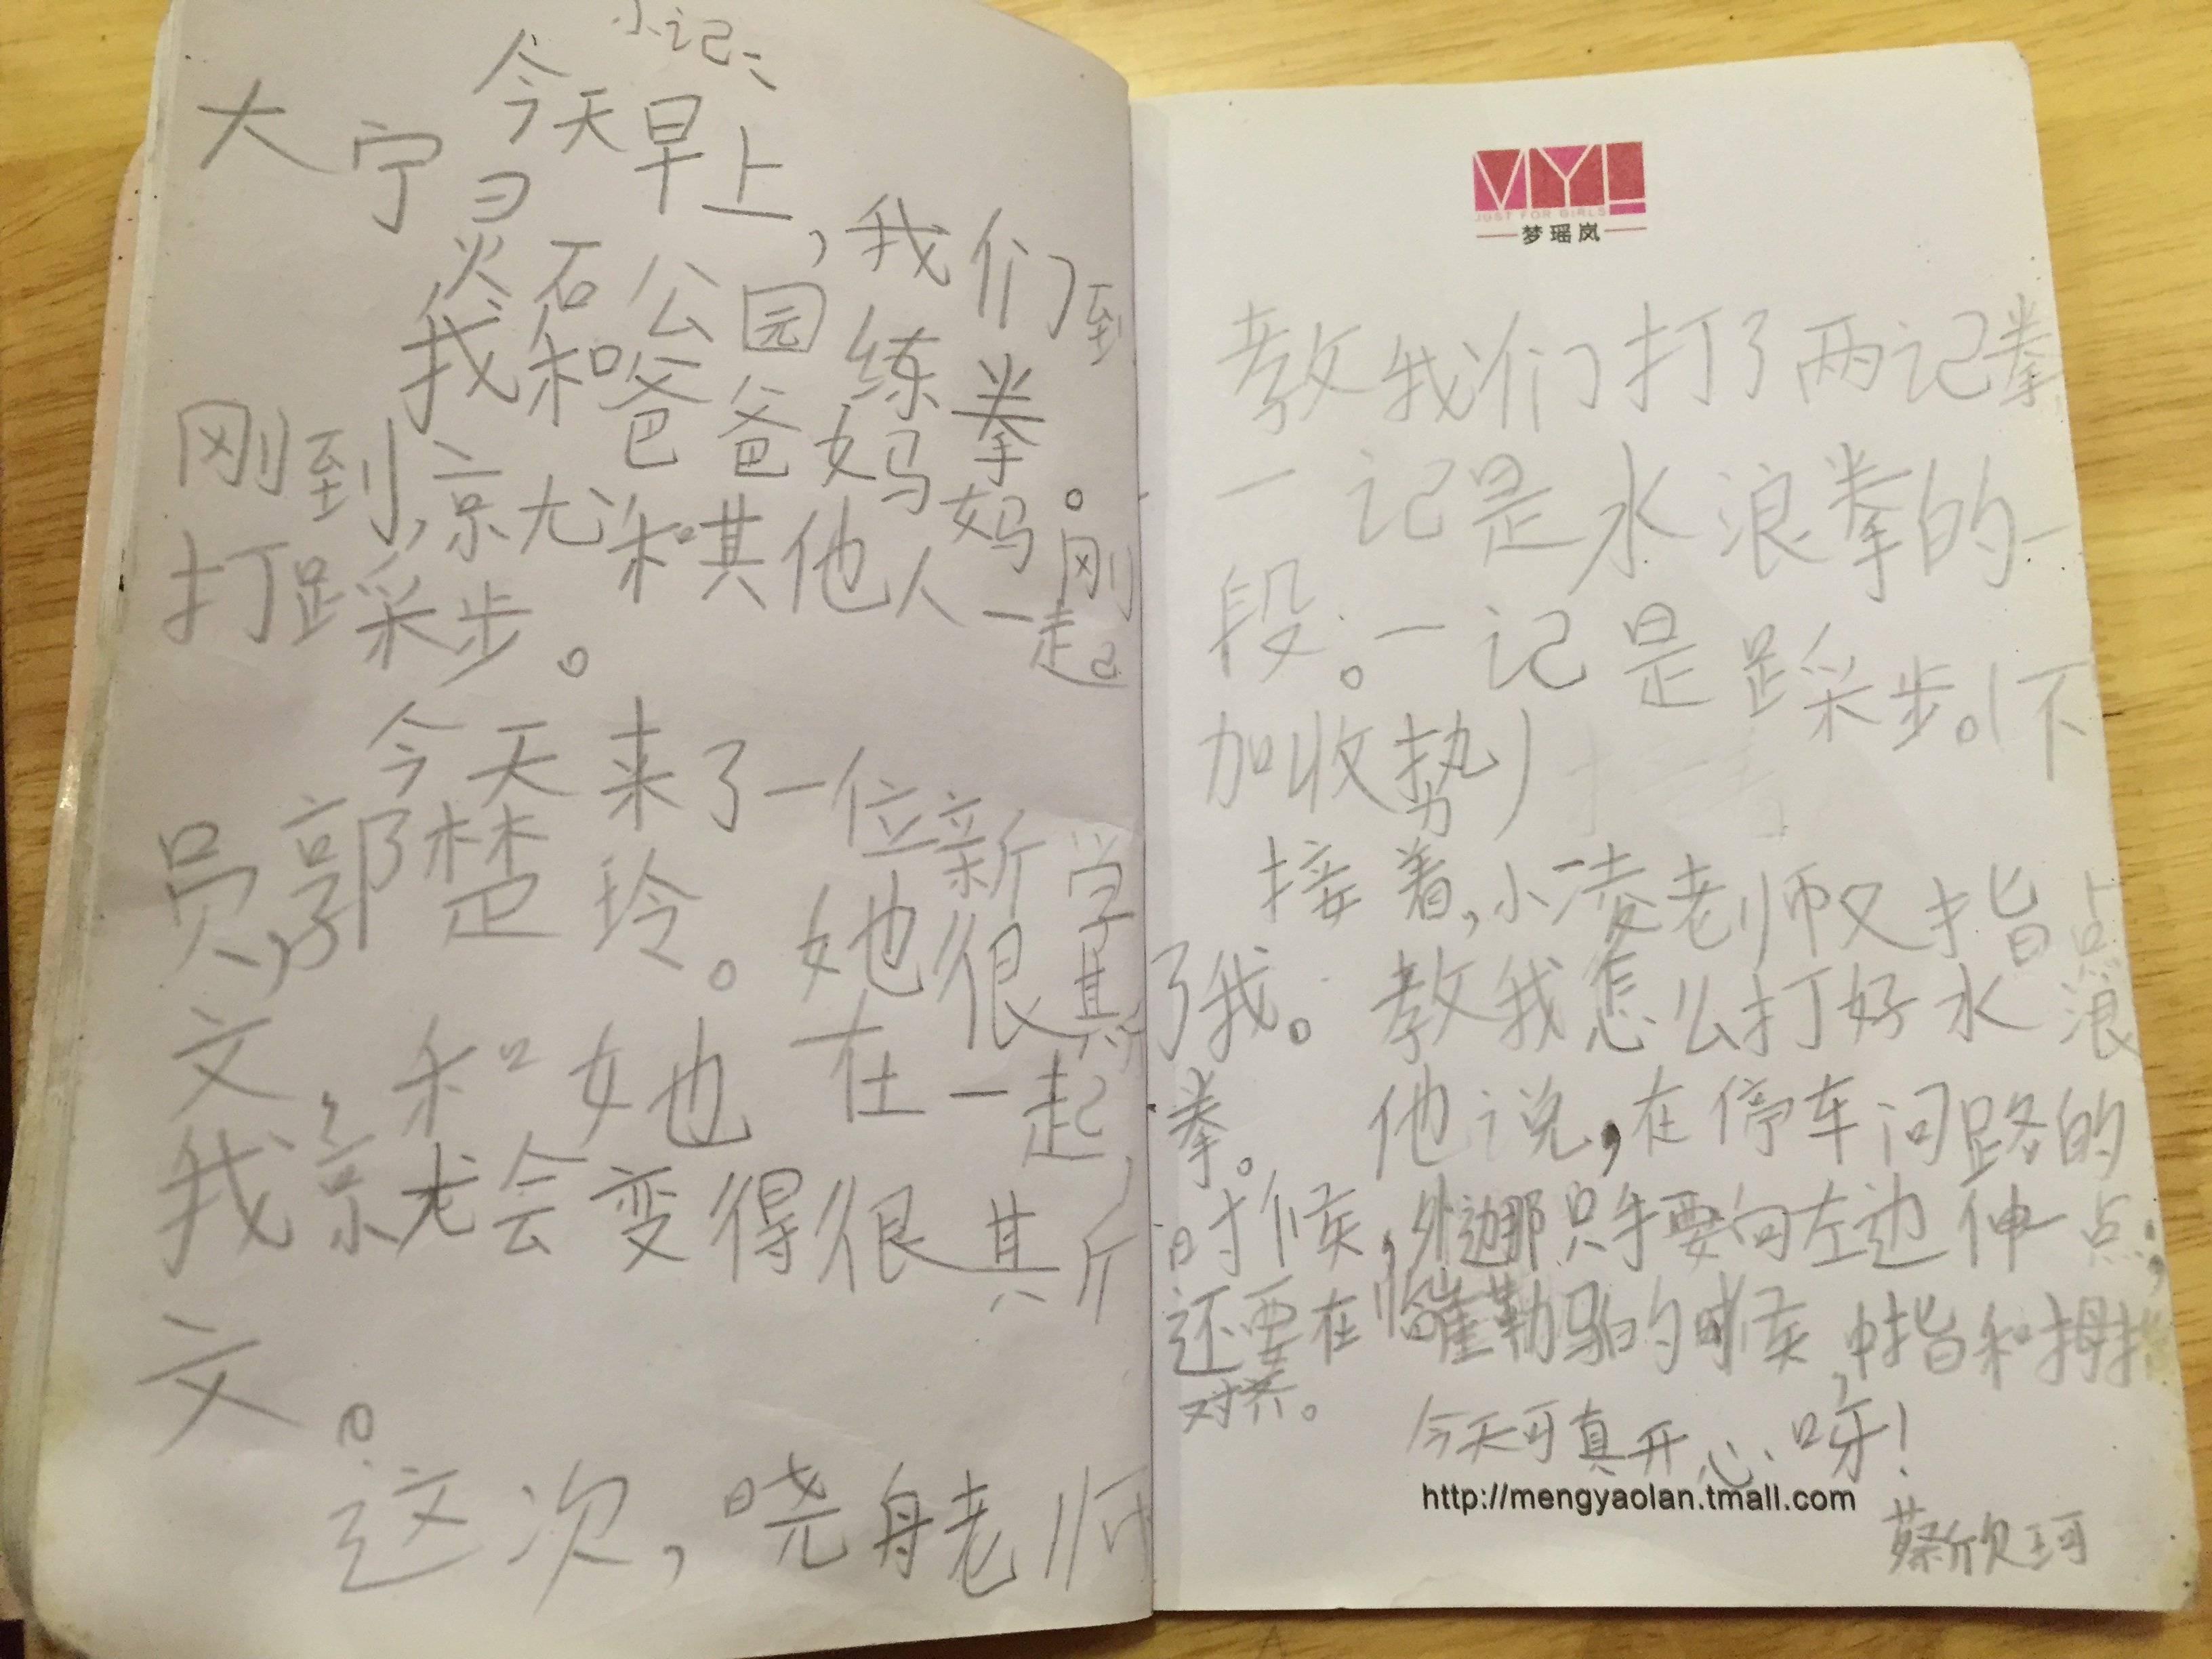 小记
今天早上,我们到
大宁灵石公园练拳。
我和爸爸妈妈刚
刚到,就和其他人一起
打踩步。
今天来了一位新学
员,郭楚玲。她很斯
文,和她在一起,
我就会变得很斯
文。
这次,晓舟老师
MY!
JUST FOR GIRLS
梦瑶岚
教我们打了两记拳
一记是水浪拳的一
段。一记是踩步。(不
加收势)
接着,小凌老师又指点
了我。教我怎么打好水浪
拳。他说,在停车问路的
时候,外边那只手要向左边伸点,
还要在 勒 的时候,中指和拇指
对齐。
今天可真开心呀!
http://mengyaolan.tmall.com
蔡欣珂